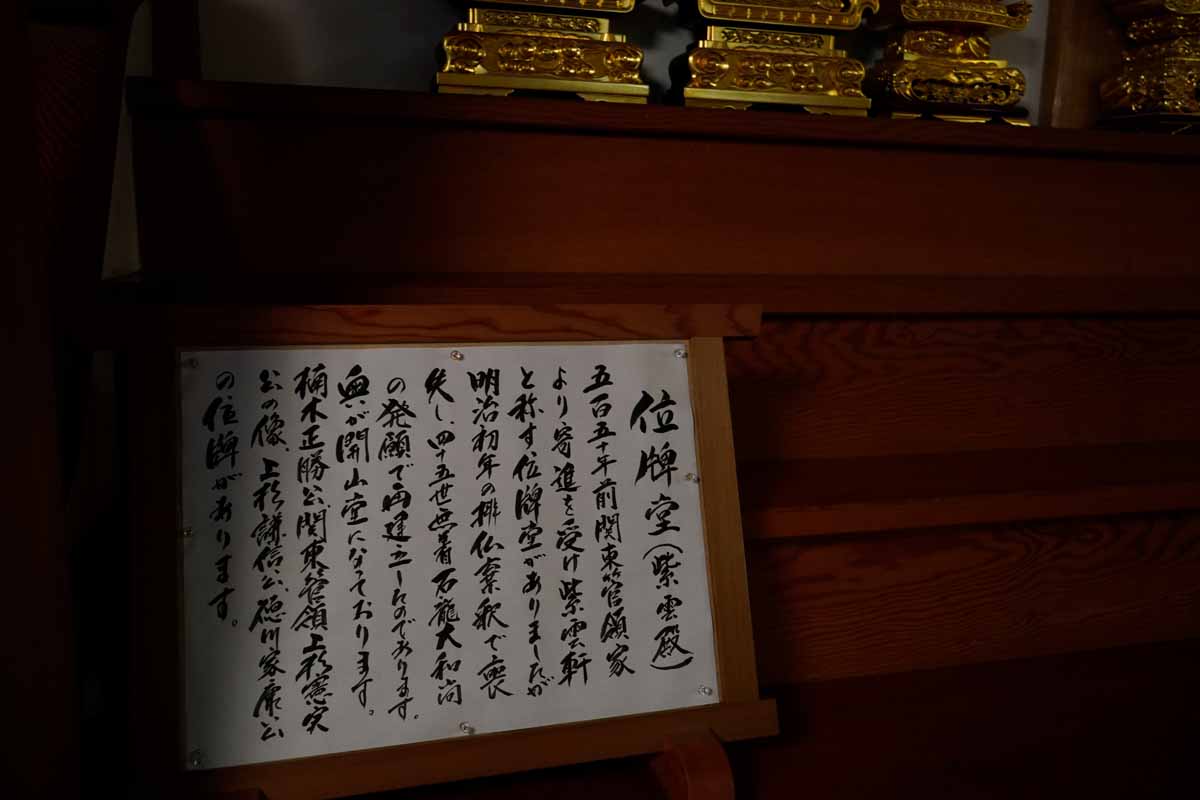 位牌堂(紫雲殿)
五百五十年前関東管領家
より寄進を受け紫雲軒
と称す位牌堂がありましたが
明治初年の排仏棄釈で喪
失し、四十五世無着石龍大和尚
の発願で再建立したのであります。
奥が開山堂になっております。
楠木正勝公関東管領上杉憲実
公の像、上杉謙信公、徳川家康公
の位牌があります。